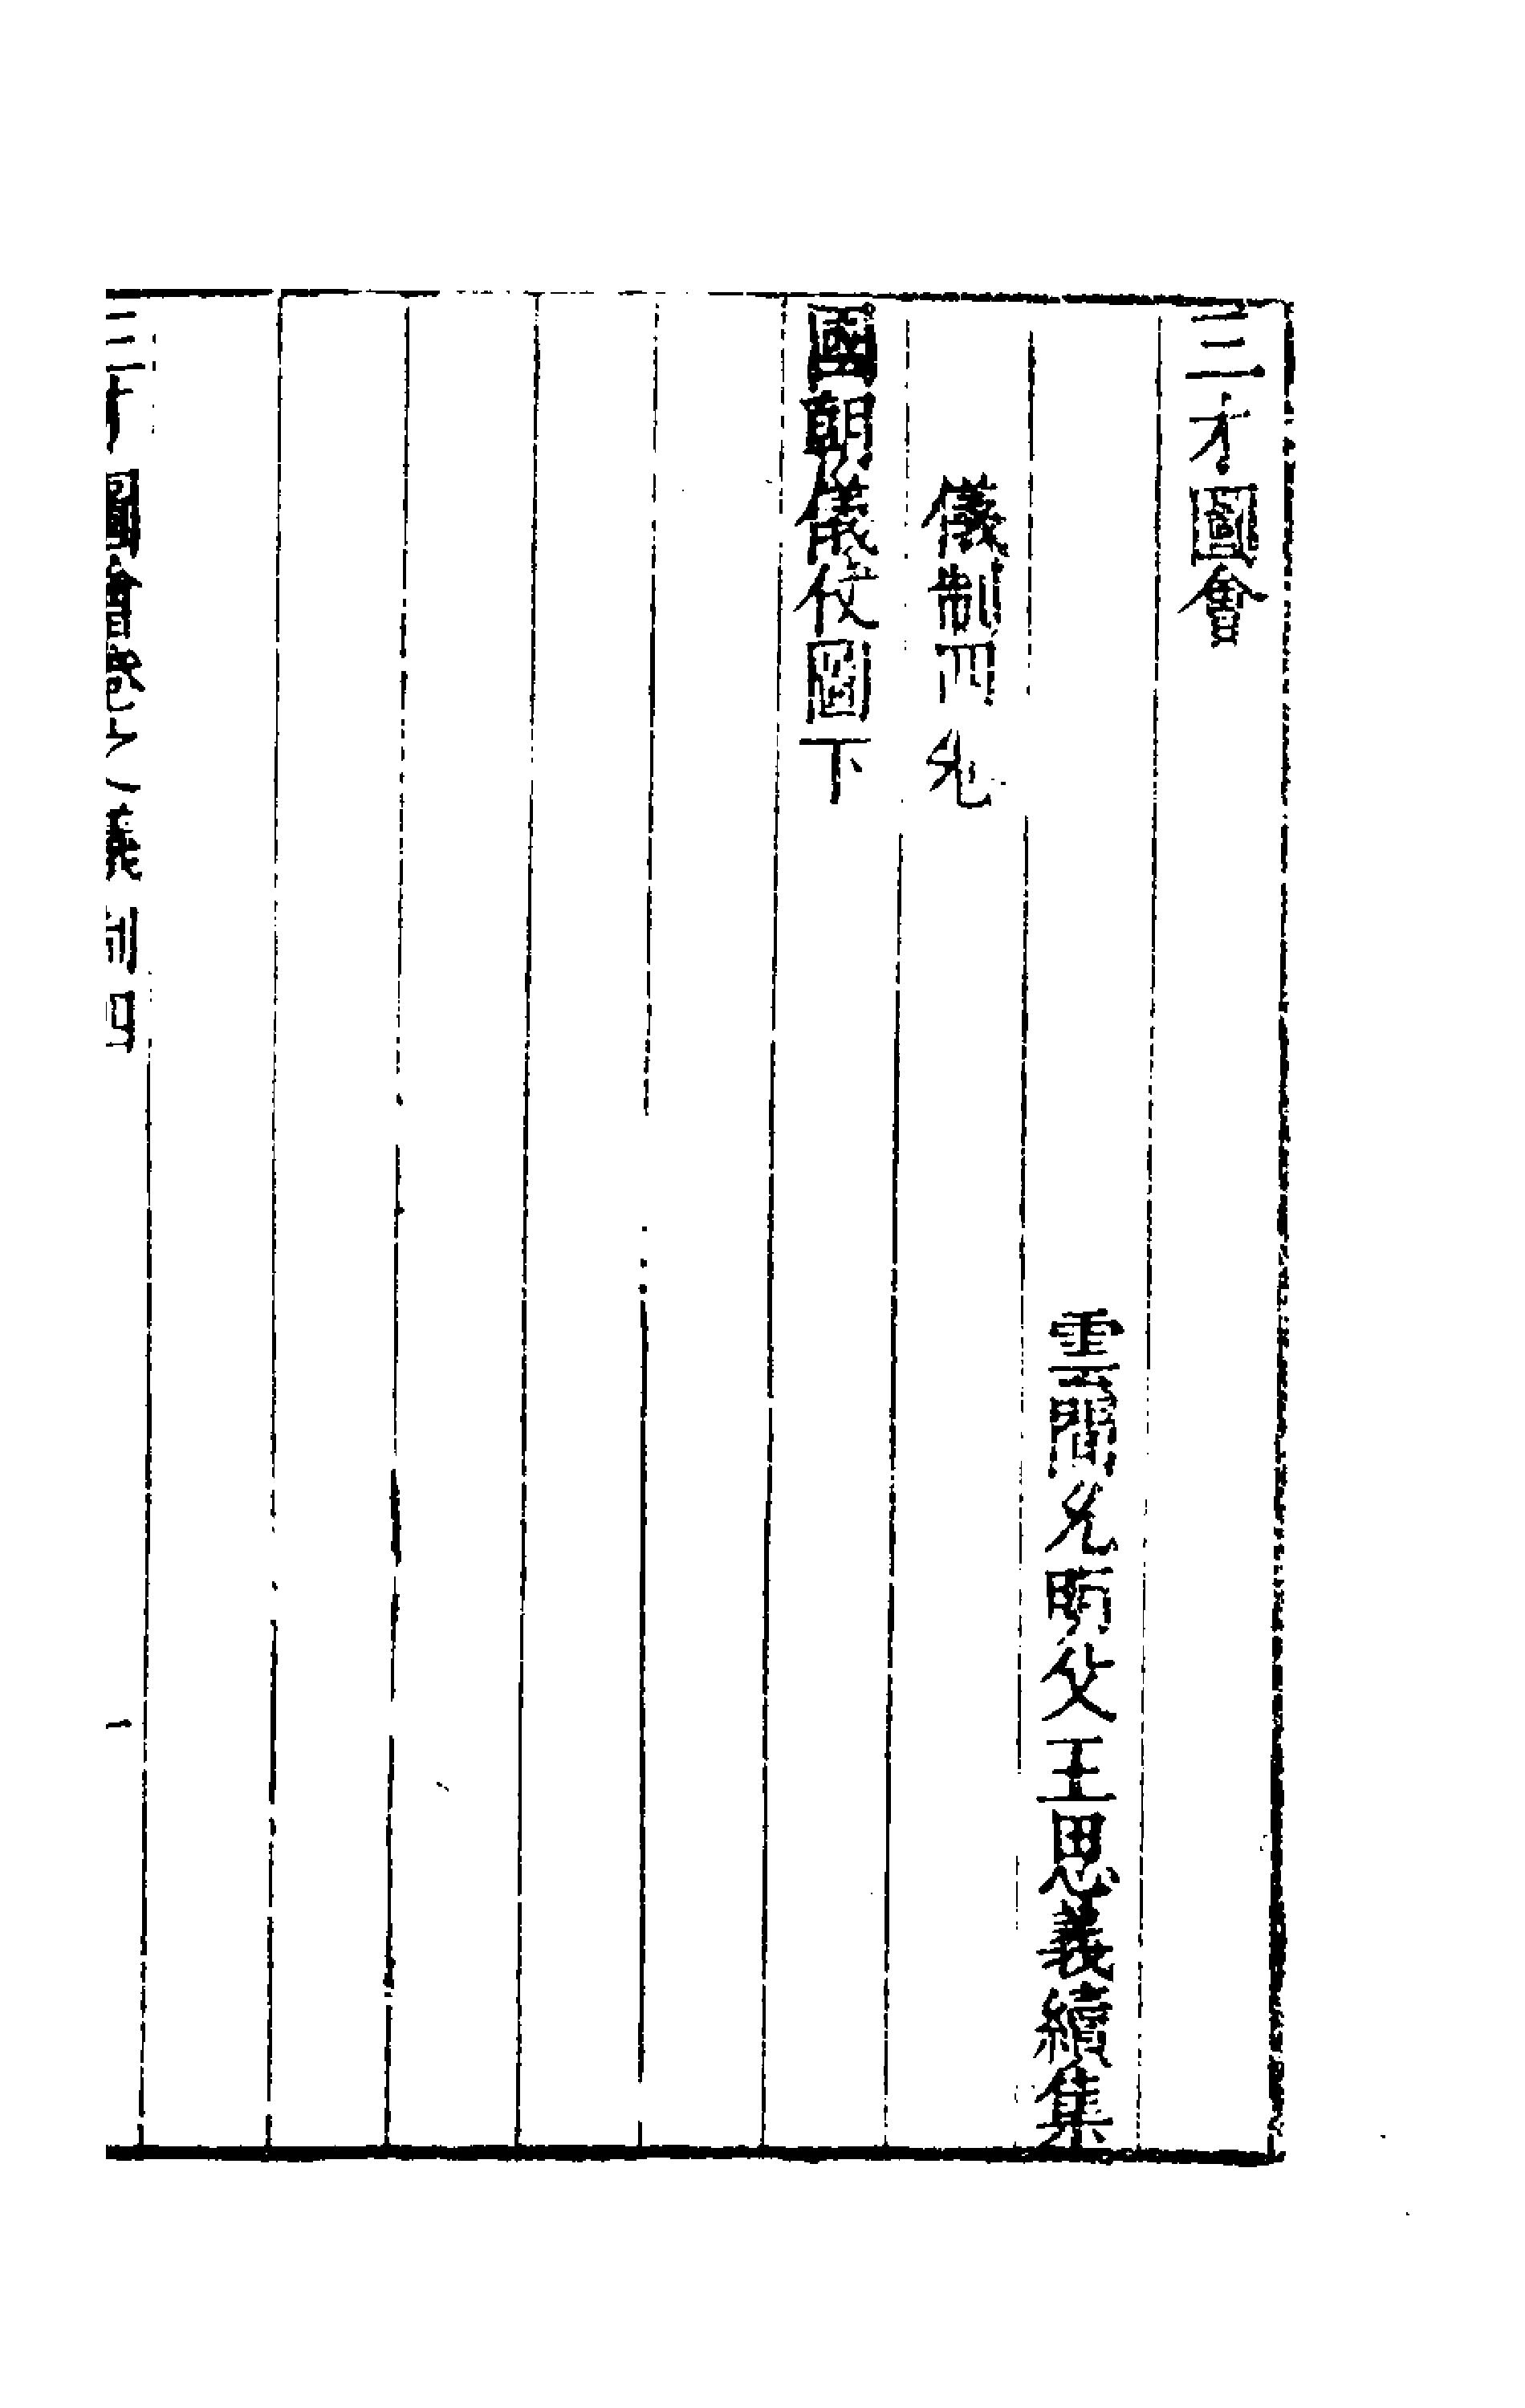 三才圖會
雲間允明父王思義續集
儀制四卷
國朝儀仗圖下
三才圖會 儀制四
一